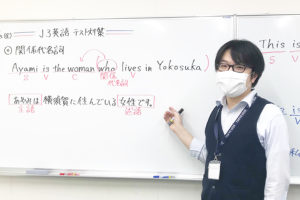 J3英語 テスト対策
関係代名詞
Ayami is the woman (who lives in Yokosuka)
S V C 関係代名詞 V
あやみは 横須賀に住んでいる 女性です。
主語 述語
This is
S V